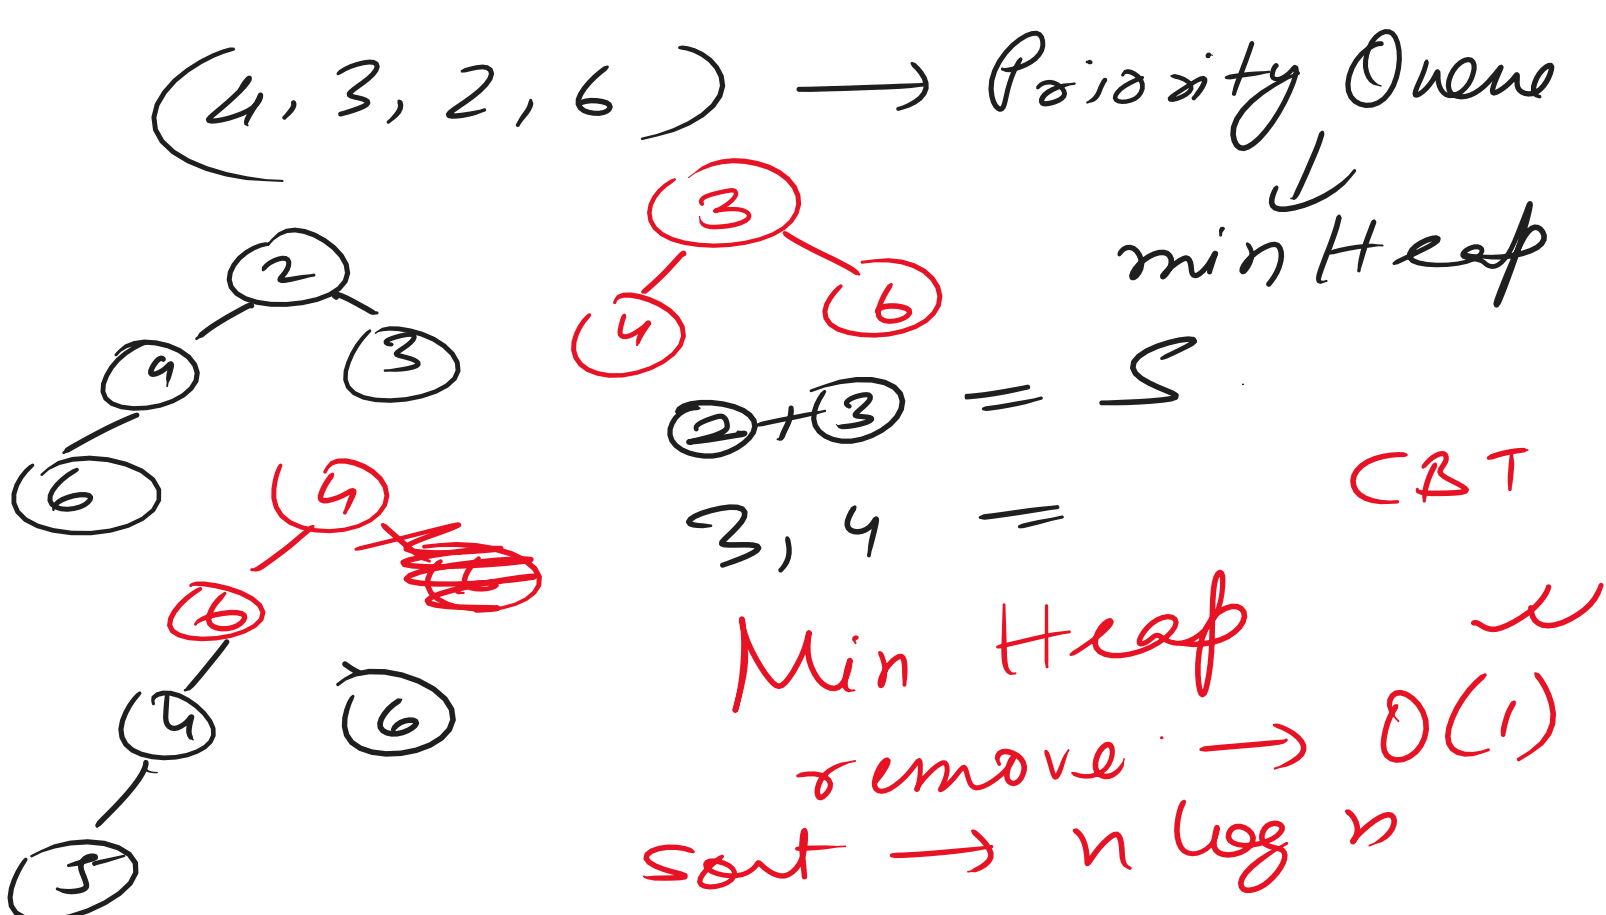 (4, 3, 2, 6) → Priority Queue
min Heap
2
4 3
6
3
4 6
2 + 3 = 5
3, 4 =
CBT
4
6
4
5
6
Min Heap
remove → O(1)
sort → n log n